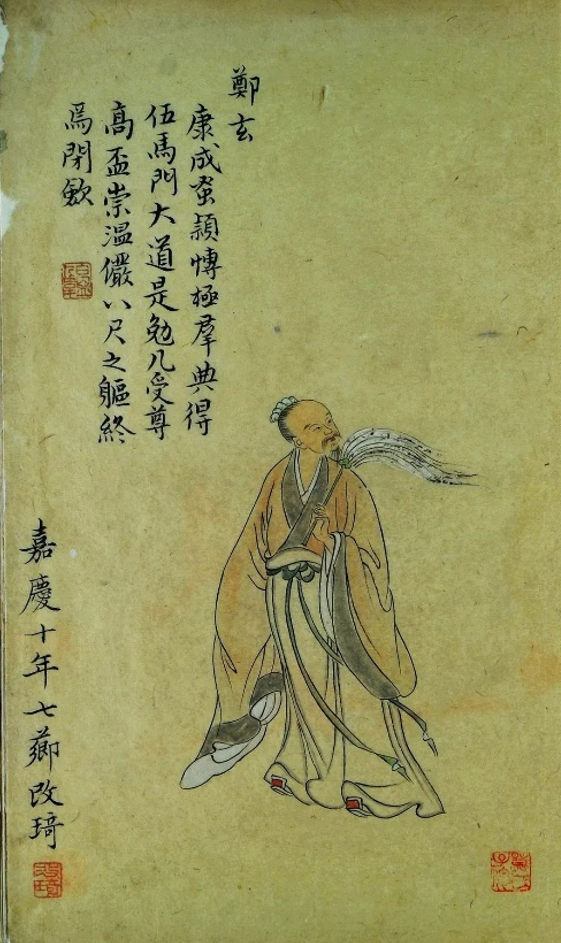 鄭玄
康成蚤穎愽極羣典得
伍馬門大道是勉几受尊
高盃崇溫儼八尺之軀終
焉閉歛
嘉慶十年七薌改琦